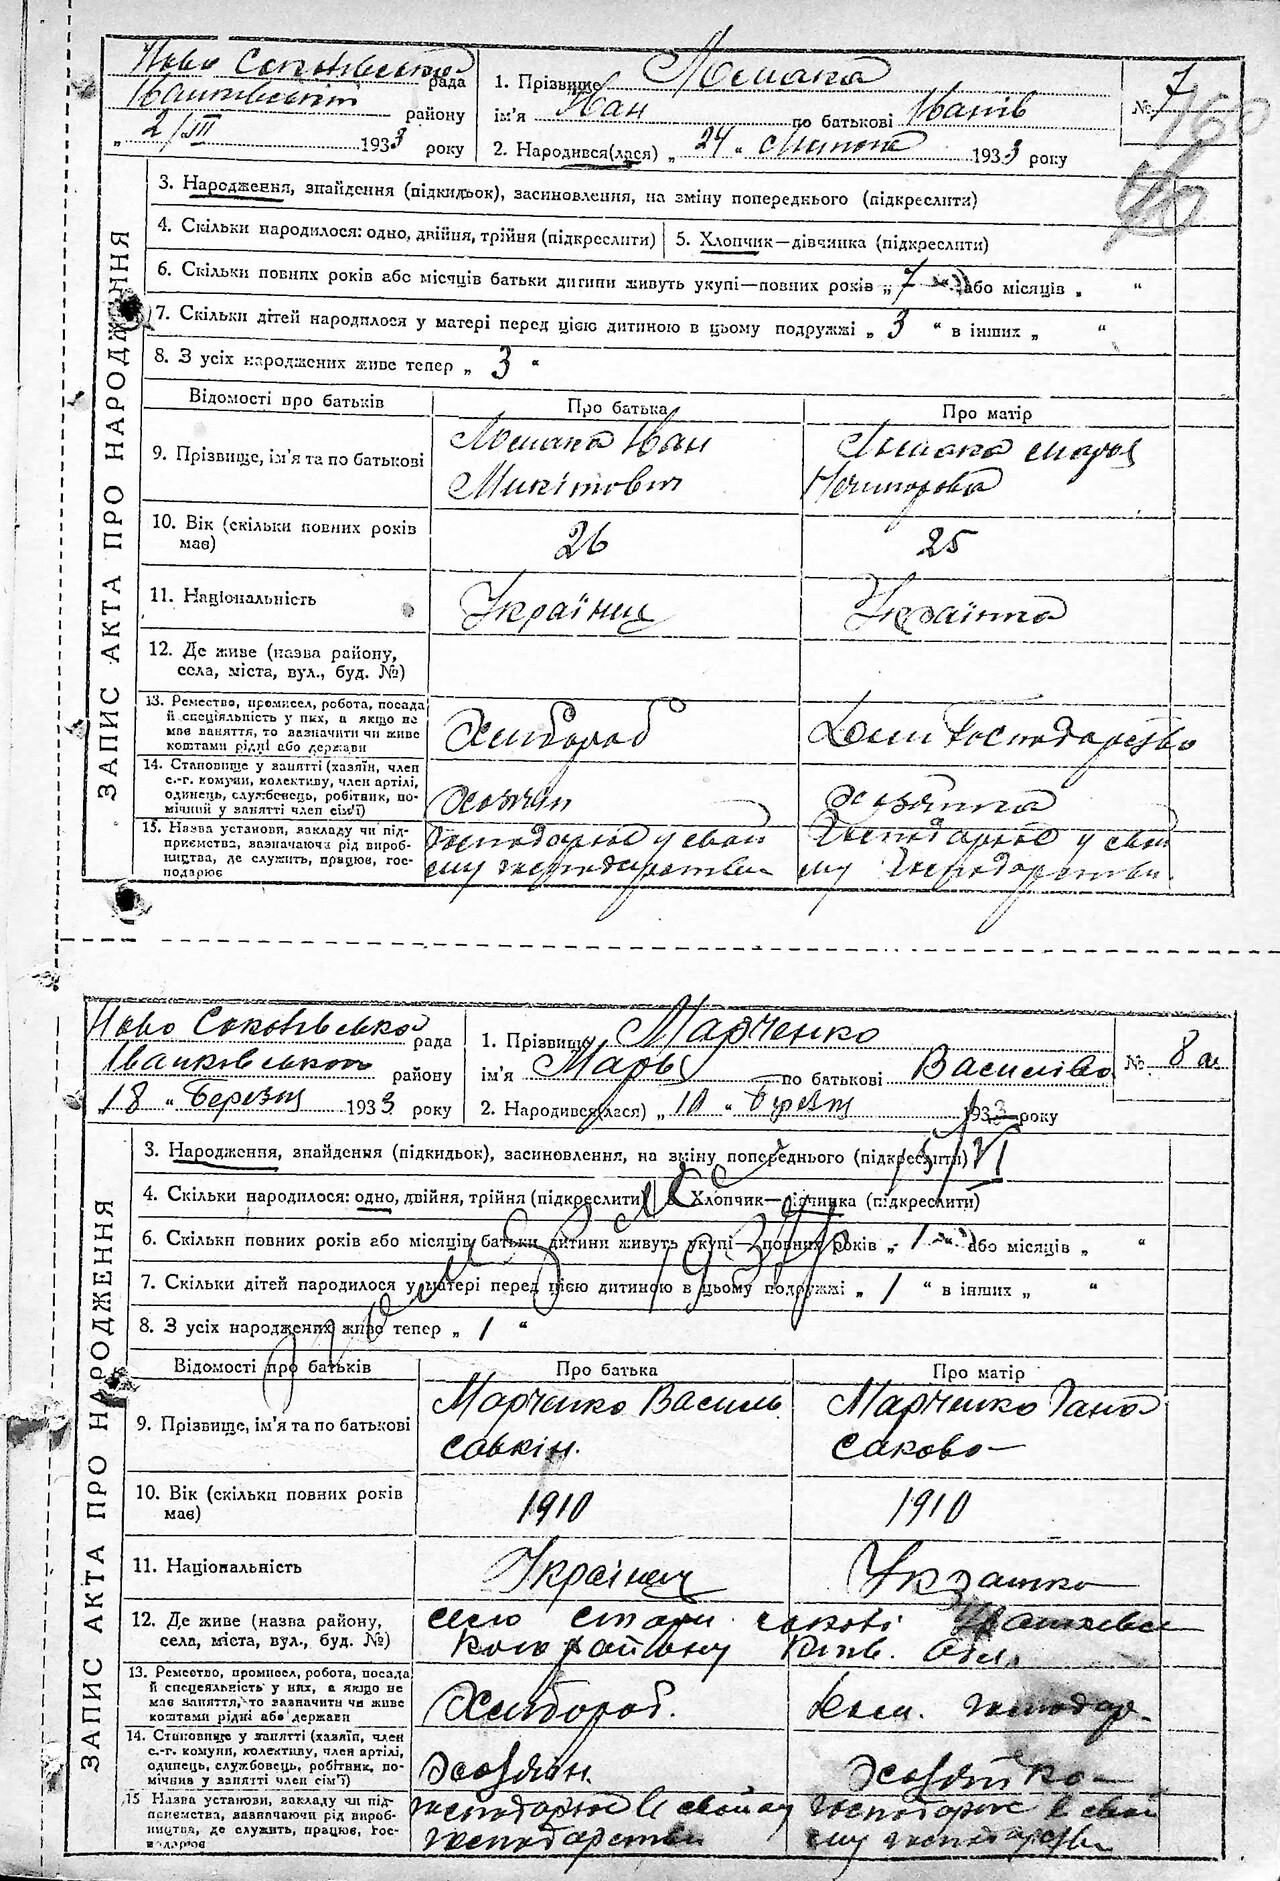 Ново Соколівською рада
Іванківський району
„ 2/III 1933 року
1. Прізвище
ім'я Іван по батькові Іванів
2. Народився(лася) „ 24 „ Лютого 1933 року
№ 7
160
ЗАПИС АКТА ПРО НАРОДЖЕННЯ
3. Народження, знайдення (підкидьок), засиновлення, на зміну попереднього (підкреслити)
4. Скільки народилося: одно, двійня, трійня (підкреслити) 5. Хлопчик—дівчинка (підкреслити)
6. Скільки повних років або місяців батьки дитини живуть укупі—повних років „ 7 або місяців „ “
7. Скільки дітей народилося у матері перед цією дитиною в цьому подружжі „ 3 “ в інших „ “
8. З усіх народжених живе тепер „ 3 “
Відомості про батьків Про батька Про матір
9. Прізвище, ім'я та по батькові
Іван
Микітович
10. Вік (скільки повних років має) 26 25
11. Національність Українец Українка
12. Де живе (назва району, села, міста, вул., буд. №)
13. Ремество, промисел, робота, посада
й спеціяльність у них, а якщо не
має заняття, то зазначити чи живе
коштами рідні або держави
Хлибороб Дом господарство
14. Становище у занятті (хазяїн, член
с.-г. комуни, колективу, член артілі,
одинець, службовець, робітник, по-
мічний у занятті член сім'ї)
Хозяин Хозяйка
15. Назва установи, закладу чи під-
приємства, вазначаючи рід вироб-
ництва, де служить, працює, гос-
подарює
Господарює у свой Господарює у свой
му господарстви му господарстви.
Ново Соколівська рада
Іванковського району
18 „ Березня 1933 року
1. Прізвище Марченко
ім'я Марья по батькові Василівна
2. Народився(лася) „ 10 „ Березня 1933 року
№ 8 а
ЗАПИС АКТА ПРО НАРОДЖЕННЯ
3. Народження, знайдення (підкидьок), засиновлення, на зміну попереднього (підкреслити)
4. Скільки народилося: одно, двійня, трійня (підкреслити) Хлопчик—дівчинка (підкреслити)
6. Скільки повних років або місяців батьки дитини живуть укупі—повних років „ 1 або місяців „ “
7. Скільки дітей народилося у матері перед цією дитиною в цьому подружжі „ 1 “ в інших „ “
8. З усіх народжених живе тепер „ 1 “
Відомості про батьків Про батька Про матір
9. Прізвище, ім'я та по батькові
Марченко Василь Марченко Гана
Савкін. Сакова
10. Вік (скільки повних років має) 1910 1910
11. Національність Українец Українка
12. Де живе (назва району, села, міста, вул., буд. №)
село Стари Соколі Іванковсь
кого району Київ. Обл.
13. Ремество, промисел, робота, посада
й спецеяльність у них, а якщо не
має заняття, то зазначити чи живе
коштами рідні або держави
Хлибороб. Дом. господар.
14. Становище у занятті (хазяїн, член
с.-г. комуни, колективу, член артілі,
одинець, службовець, робітник, по-
мічник у занятті член сім'ї)
Хозяін. Хозяйка
15 Назва установи, закладу чи під-
приємства, вазначаючи рід вироб-
ництва, де служить, працює, гос-
подарює
господарює в свойму господарює в свой
господарстви му господарстви